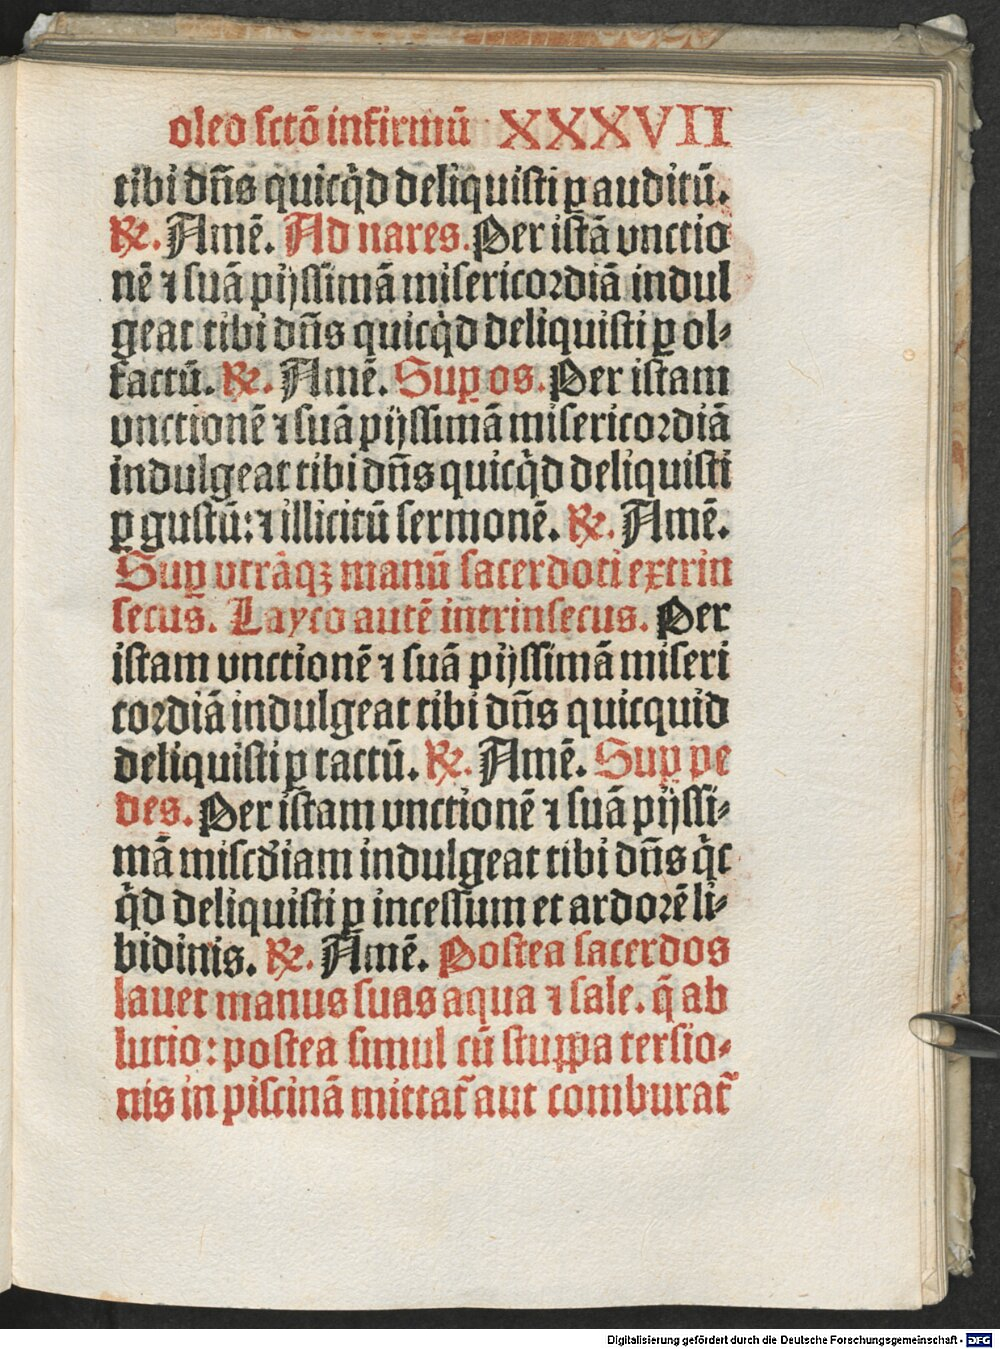 oleo sctō infirmū XXXVII
tibi dn̄s quicq̇d deliquisti ꝑ auditū.
℟. Amē. Ad nares. Per istā vnctio
nē ⁊ suā pijssimā misericordiā indul
geat tibi dn̄s quicq̇d deliquisti ꝑ ol⸗
factū. ℟. Amē. Suꝑ os. Per istam
vnctionē ⁊ suā pijssimā misericordiā
indulgeat tibi dn̄s quicq̇d deliquisti
ꝑ gustū: ⁊ illicitū sermonē. ℟. Amē.
Suꝑ vtrāqꝫ manū sacerdoti extrin
secus. Layco autē intrinsecus. Per
istam vnctionē ⁊ suā pijssimā miseri
cordiā indulgeat tibi dn̄s quicquid
deliquisti ꝑ tactū. ℟. Amē. Suꝑ pe
des. Per istam vnctionē ⁊ suā pijssi⸗
mā miscd̄iam indulgeat tibi dn̄s q̇c
q̇d deliquisti ꝑ incessum et ardorē li⸗
bidinis. ℟. Amē. Postea sacerdos
lauet manus suas aqua ⁊ sale. q̄ ab
lutio: postea simul cū stuppa tersio⸗
nis in piscinā mittat᷑ aut comburat᷑
Digitalisierung gefördert durch die Deutsche Forschungsgemeinschaft - DFG